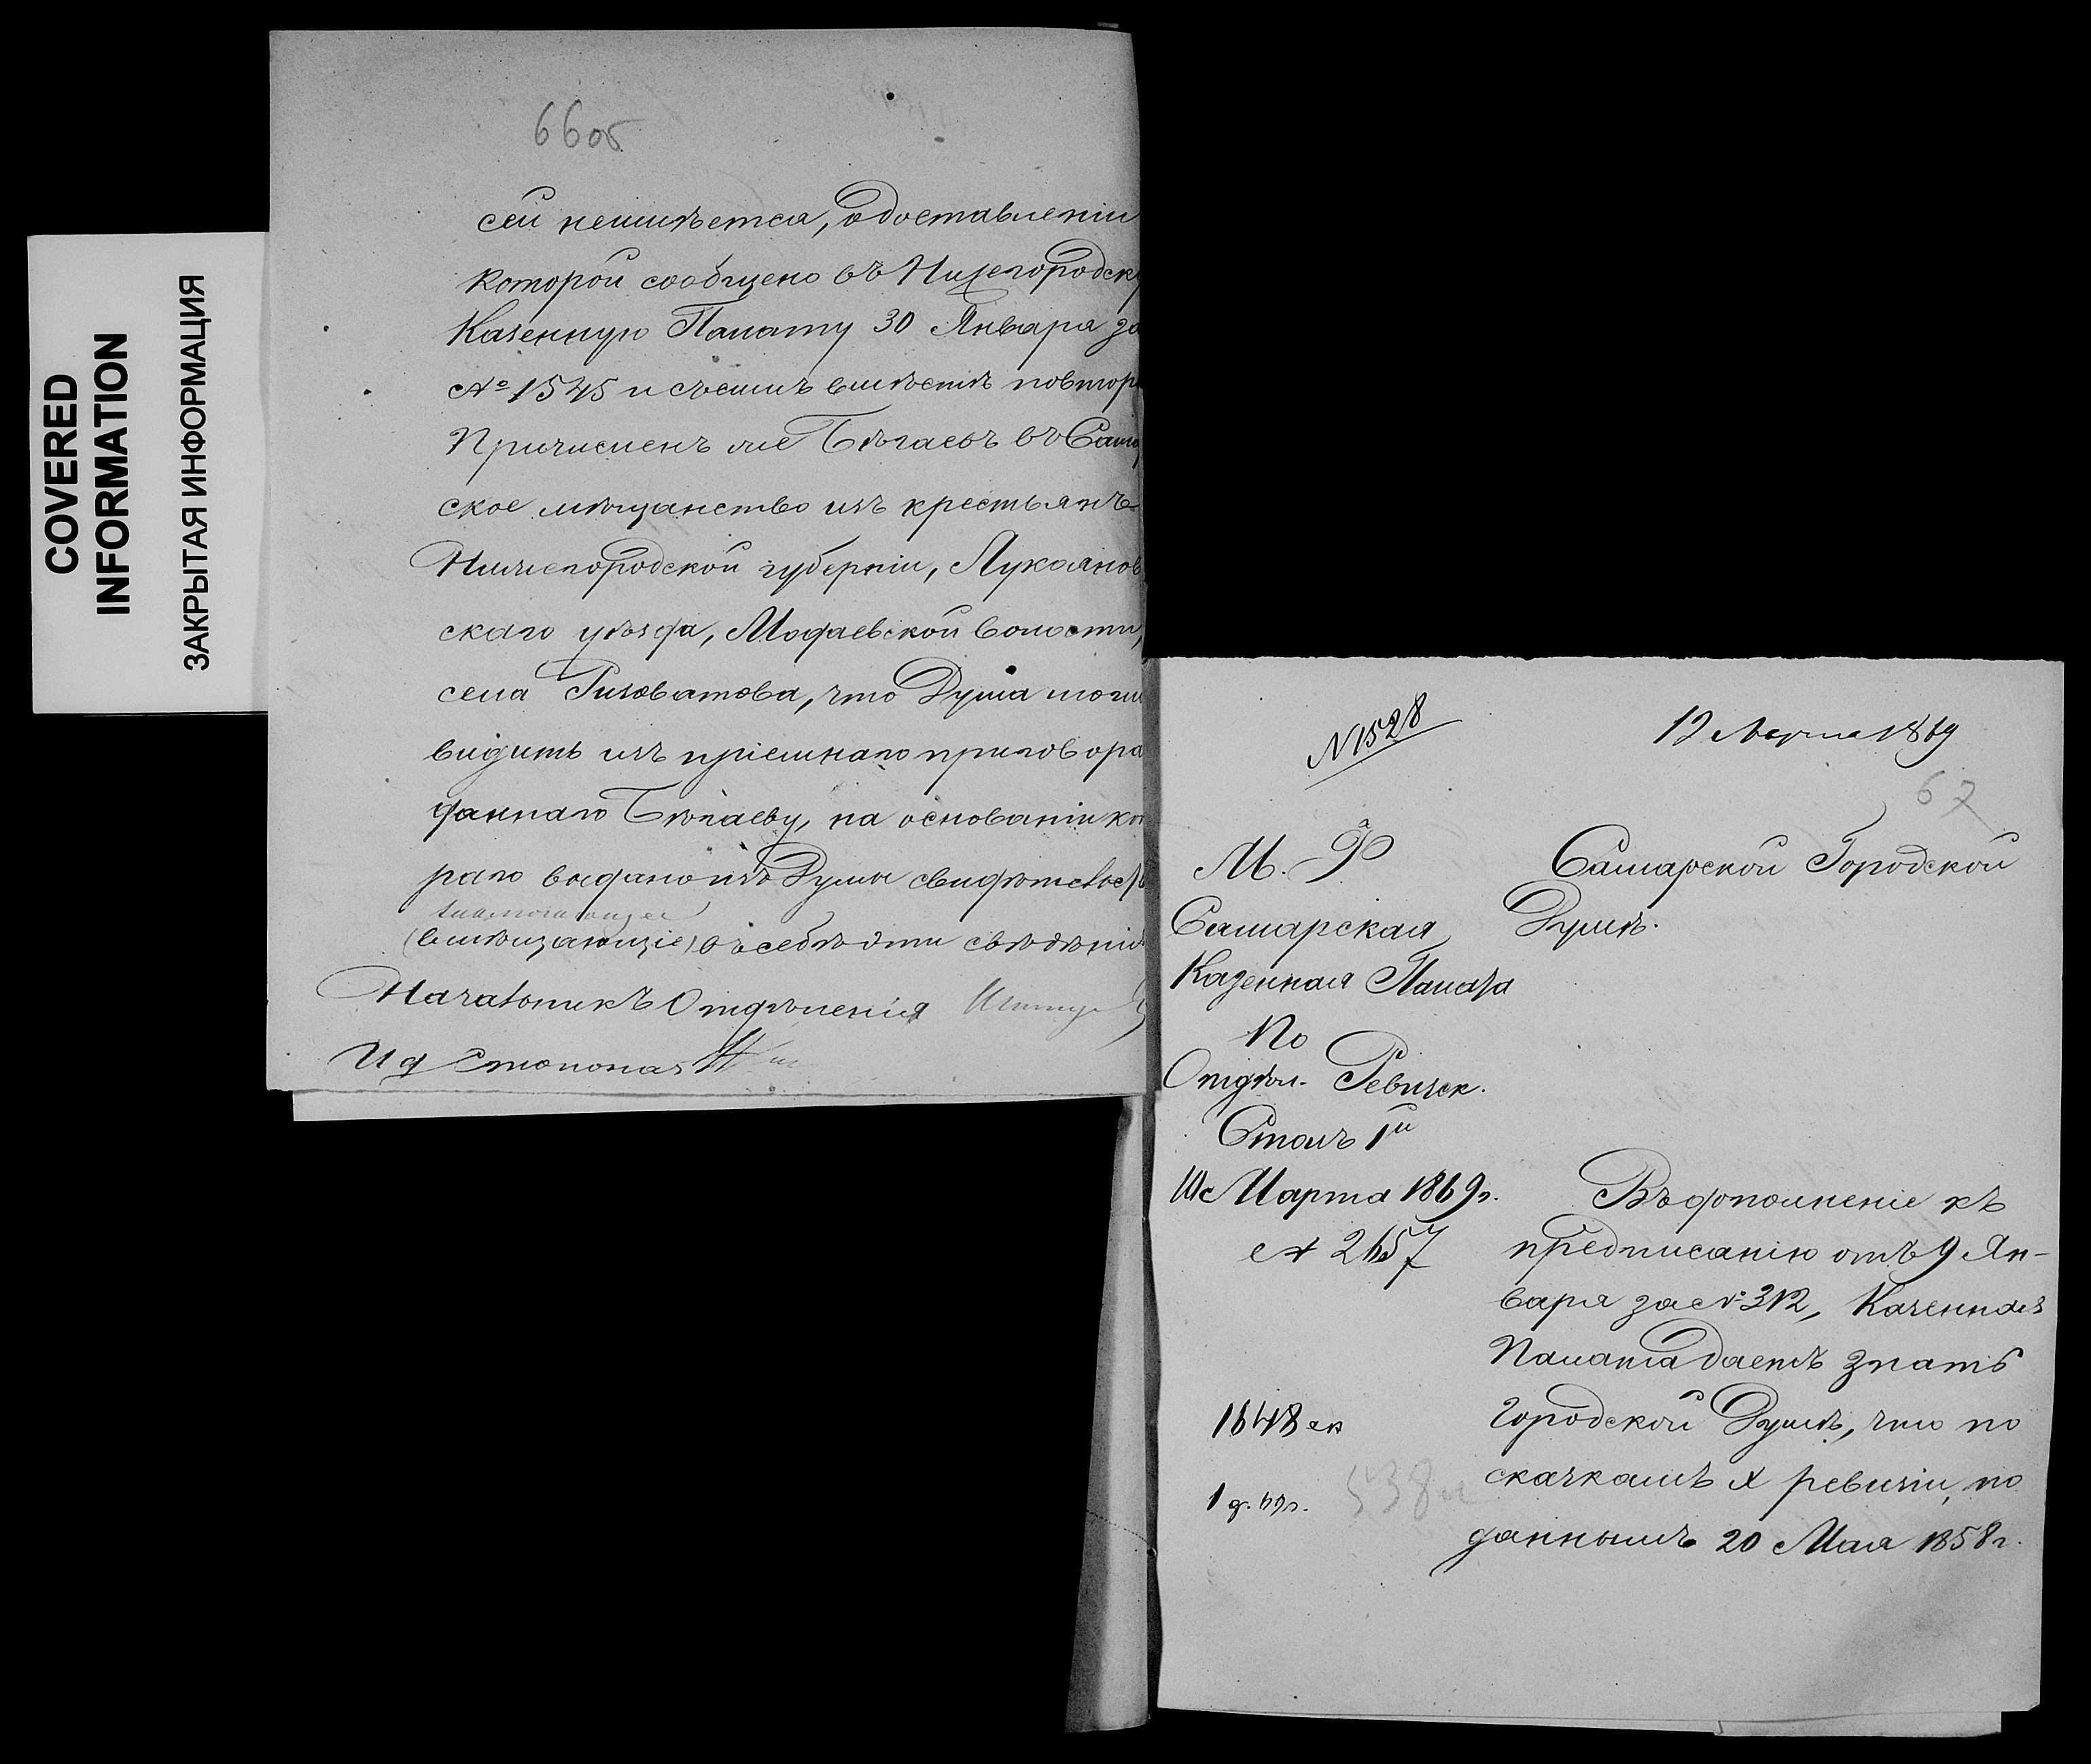 COVERED
INFORMATION
ЗАКРЫТАЯ ИНФОРМАЦИЯ
66об
сей неимѣется, о доставленіи
которой сообщено въ Нижегородск
Казенную Палату 30 Января за
№ 1545 и съ симъ вмѣстѣ повтор
Причисленъ же Бѣгаевъ въ Сама
ское мѣщанство изъ крестьянъ
Нижегородской губерніи, Лукоянов
скаго уѣзда, Мадаевской волости,
села Ризоватова, что Дума могла
видить изъ пріемнаго приговора
даннаго Бѣгаеву, на основаніи ко
раго выдано изъ Думы свидѣтельс
(вмѣщающіе) въ себѣ эти свѣдѣнія
Начальникъ Отдѣленія
И д Столонач
N 1528
12 Марта 1869
67
М. Ф
Самарская
Казенная Палата
По
Отдѣл. Ревизск.
Столъ 1й
Марта 1869 г.
№ 2657
1648
1 д.
538
Самарской Городской
Думѣ.
Въ дополненіе къ
предписанію отъ 9 Ян-
варя за № 312, Казенная
Палата даетъ знать
Городской Думѣ, что по
сказкамъ X ревизіи, по
даннымъ 20 Мая 1858 г.